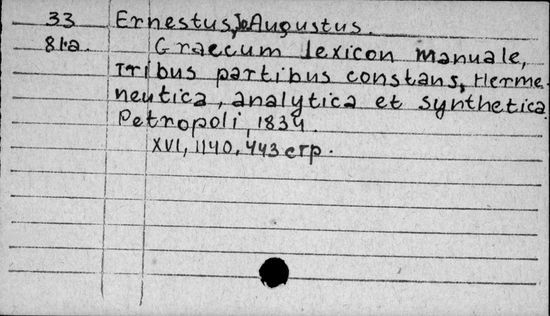 33 Ernestus, Jo Augustus.
81.a. Graecum lexicon manuale,
Tribus partibus constans, Herme-
neutica, analytica et synthetica
Petropoli, 1834.
XVI, 1140, 443 стр.